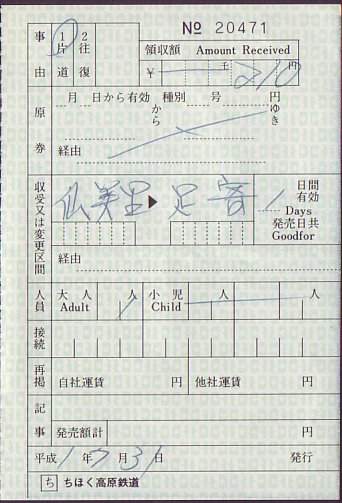 № 20471
事由 1片道 2往復 領収額 Amount Received
¥ 千 210 円
原券 月 日から有効 種別 号 円
から ゆき
経由
収受又は変更区間 仙美里 ▶ 足寄 1 日間有効
Days
発売日共
Goodfor
経由
人員 大人 Adult 1 人 小児 Child 人 人
接続
再掲 自社運賃 円 他社運賃 円
記事 発売額計 円
平成 1 年 7 月 31 日 発行
ち ちほく高原鉄道